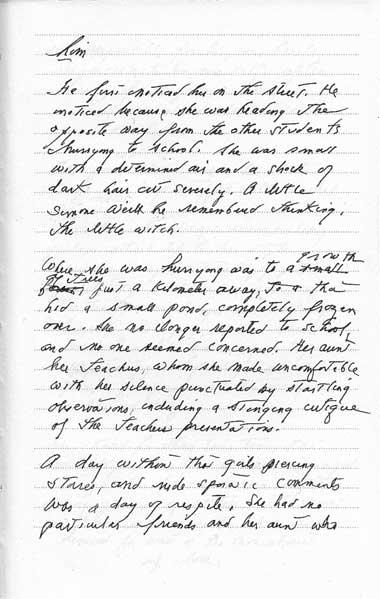 him
He first noticed her on the street. He
noticed because she was heading the
opposite way from the other students
hurrying to school. She was small
with a determined air and a shock of
dark hair cut severely. A little
Simone Weil he remembered thinking.
The little witch.
growth
Where she was hurrying was to a small
of trees just a kilometer away, to a that
hid a small pond, completely frozen
over. She no longer reported to school,
and no one seemed concerned. Her aunt
her teachers, whom she made uncomfortable
with her silence punctuated by startling
observations, including a stinging critique
of the teachers presentations.
A day without that girls piercing
stares, and rude sporadic comments
was a day of respite. She had no
particular friends and her aunt who